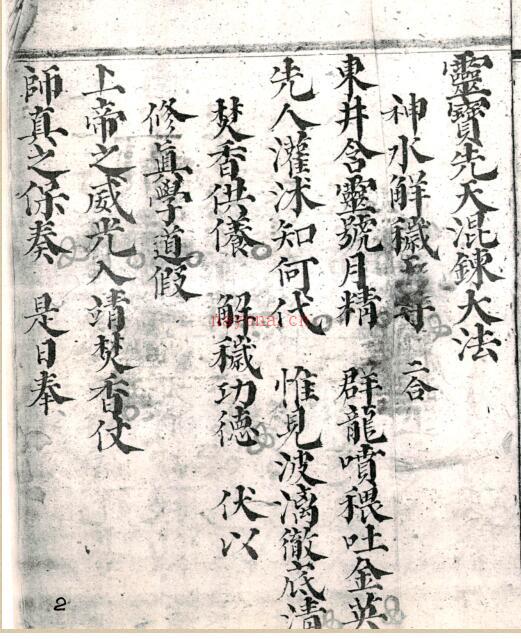 靈寶先天混鍊大法
神水解穢天尊 二合
東井含靈號月精 群龍噴猥吐金英
先人灌沭知何代 惟見波漓徹底清
焚香供儀 解穢功德 伏以
修真學道假
上帝之威光入靖焚香仗
師真之保奏 是日奉
nayona.cn
2